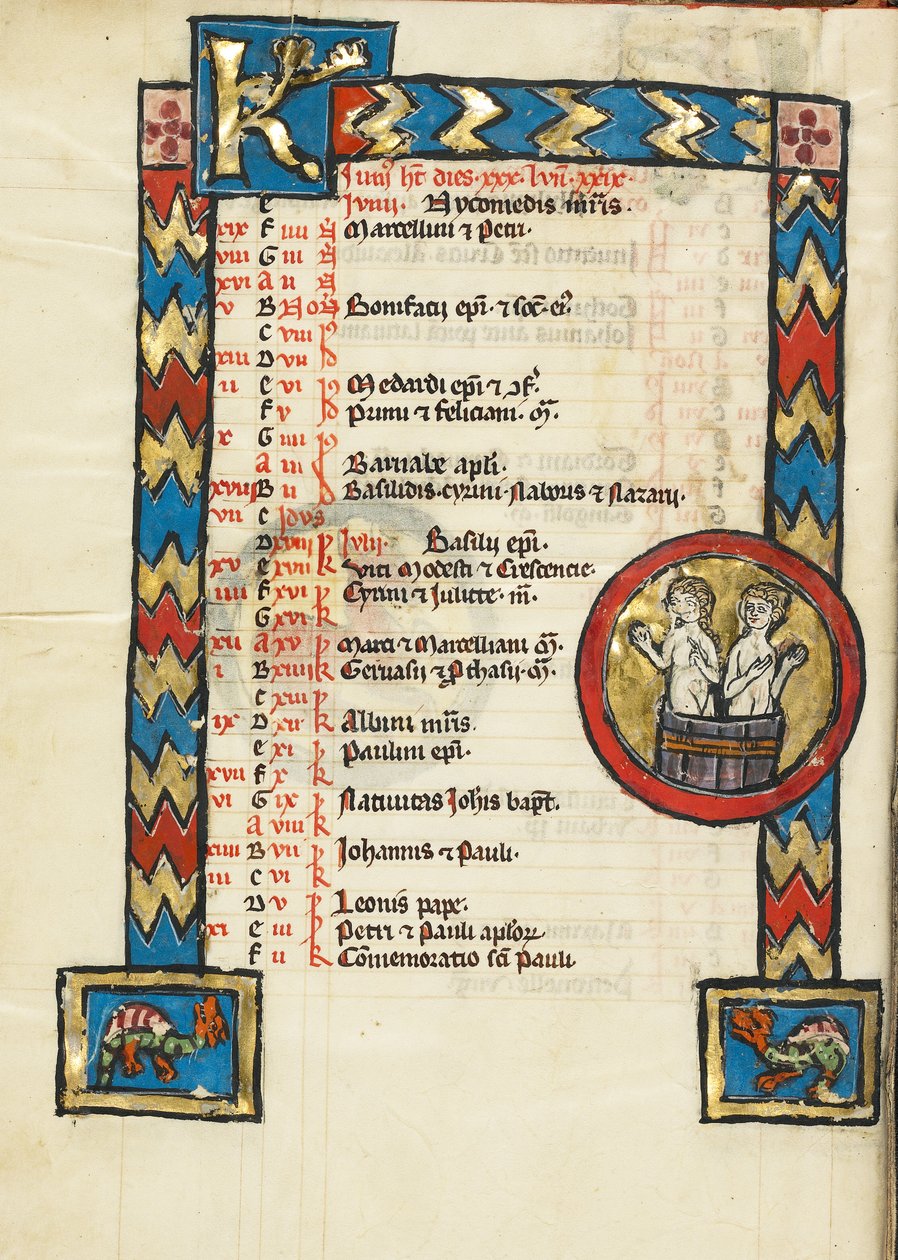 K
Juniꝰ ht dies·xxx·lun̄·xxix·
e Junii· Nycomedis mr̄is·
xix F iiii N Marcellini ⁊ Petri·
viii G iii N
xvi A ii N
v B Non̄ Bonifacii ep̄i·⁊ soc̄·eiꝰ·
C viii Id
xiii D vii Id
ii e vi Id Medardi ep̄i ⁊ ꝯf̄·
F v Id Primi ⁊ feliciani· m̄·
x G iiii Id
A iii Id Barnabe apl̄i·
xviii B ii Id Basilidis·cyrini·Naboris ⁊ Nazarii·
vii C Idus
D xviii k Julii· Basilii ep̄i·
xv e xvii k Viti Modesti ⁊ Crescencie·
iiii F xvi k Cyrini ⁊ Julitte· m̄·
G xvi k
xii A xv k Marci ⁊ Marcelliani m̄·
i B xiiii k Geruasii ⁊ ꝓthasii·m̄·
C xiii k
ix D xii k Albini mr̄is·
e xi k Paulini ep̄i·
xvii F x k
vi G ix k Natiuitas Joh̄is bapt̄·
A viii k
xiiii B vii k Johannis ⁊ Pauli·
iii C vi k
D v k Leonis pape·
xi e iii k Petri ⁊ Pauli apl̄oꝝ·
F ii k Com̄emoratio sc̄i Pauli